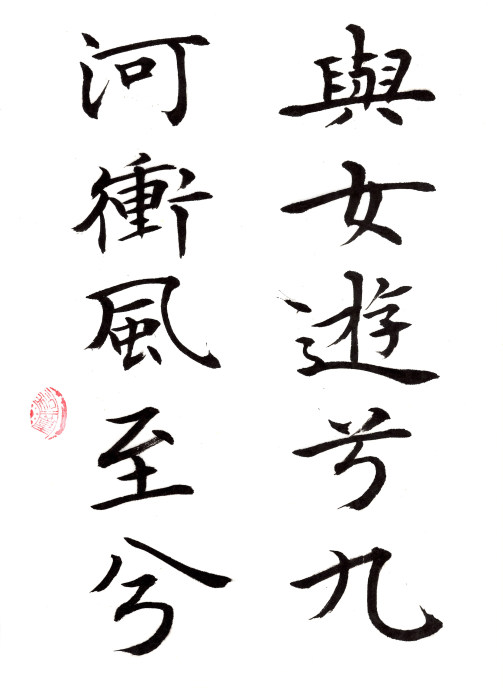 與女遊兮九
河衝風至兮